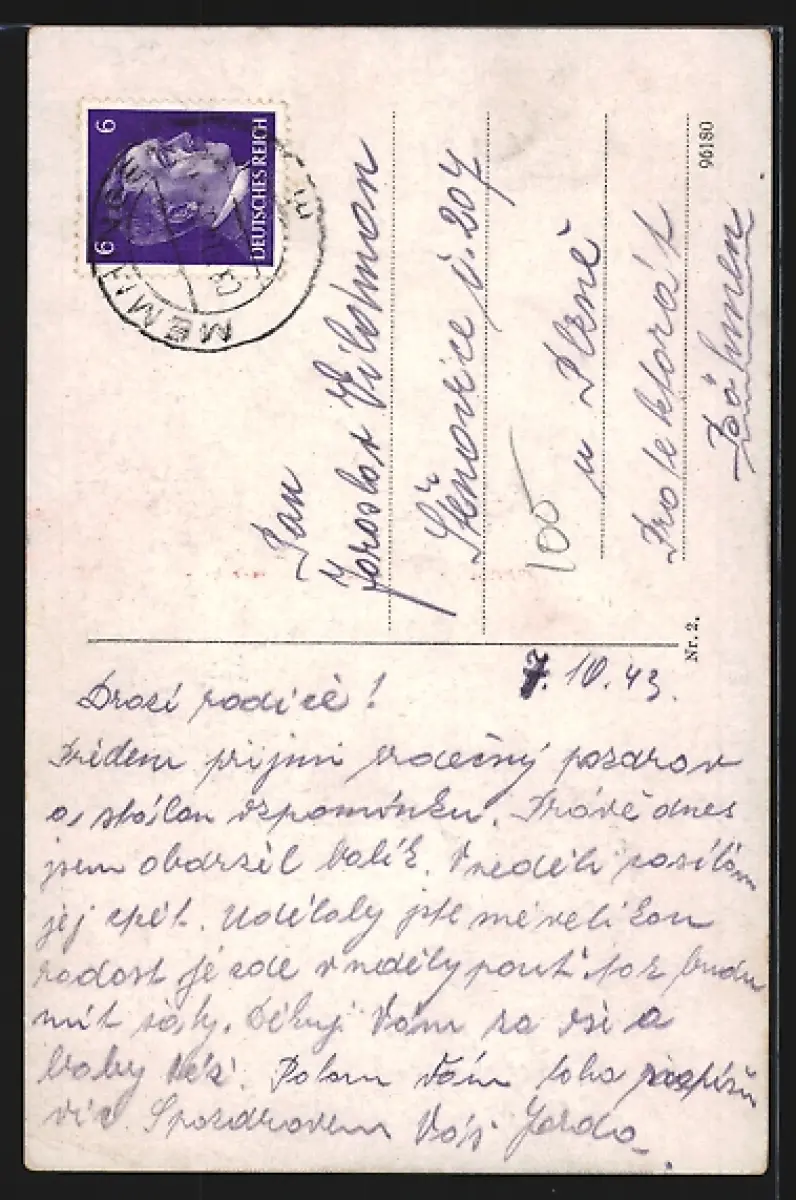 6 6
DEUTSCHES REICH
Pan
Jaroslav
Štěnovice č. 207
u Plzně
Protektorát
Böhmen
100
96180
Nr. 2.
7. 10. 43.
Drazí rodiče!
Předem přijmi srdečný pozdrav
a stálou vzpomínku. Právě dnes
jsem obdržel balík. V neděli posílám
jej zpět. Udělaly jste mě velikou
radost je zde v neděly pouť tak budu
mít šaty. Děkuji Vám za vše a
báby též. Potom Vám toho napíšu
víc. S pozdravem Váš Jarda